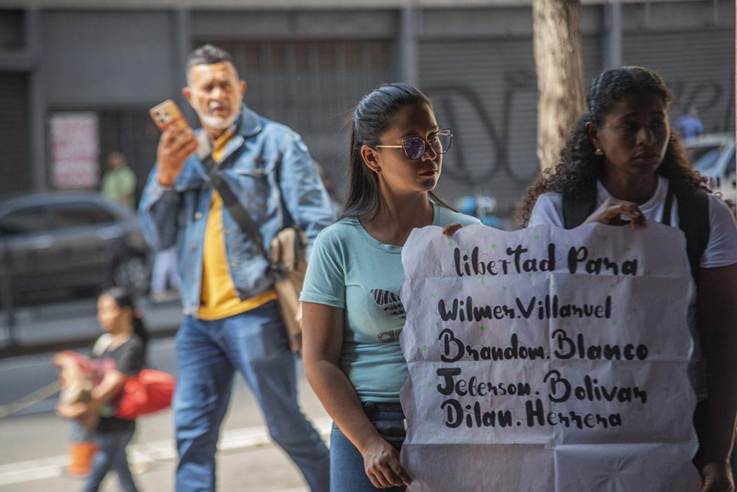 libertad Para
Wilmer Villaruel
Brandom. Blanco
Jeferson. Bolivar
Dilan. Herrera